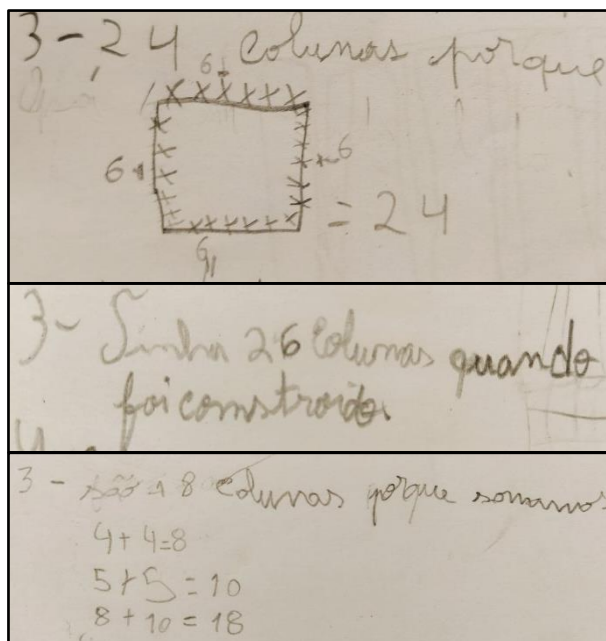 3 - 24 colunas porque
6
6
6
6
= 24
3 - Tinha 26 colunas quando
foi comstroido.
3 - são 18 colunas porque somamos
4 + 4 = 8
5 + 5 = 10
8 + 10 = 18